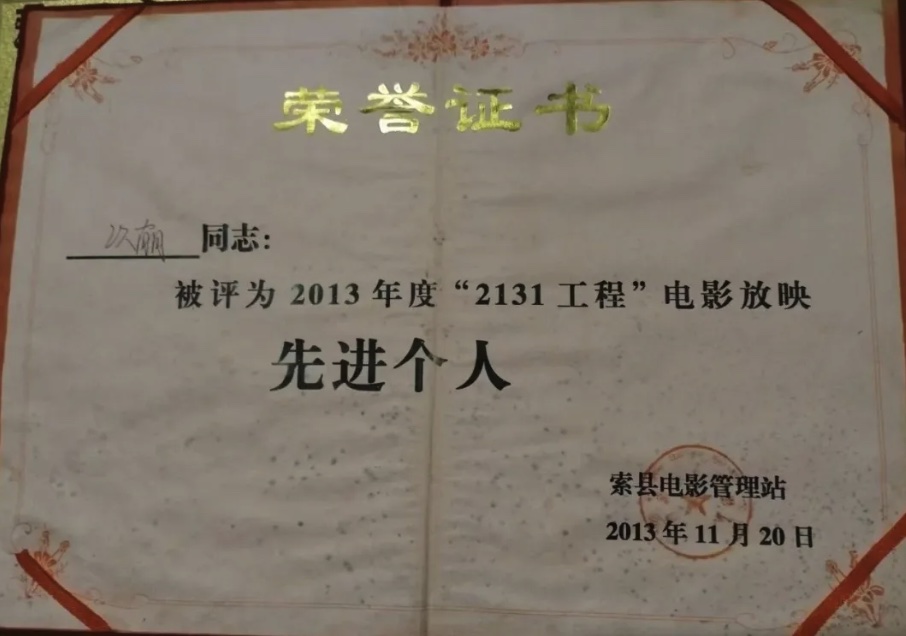 荣誉证书
同志：
被评为 2013 年度“2131 工程”电影放映
先进个人
索县电影管理站
2013 年 11 月 20 日